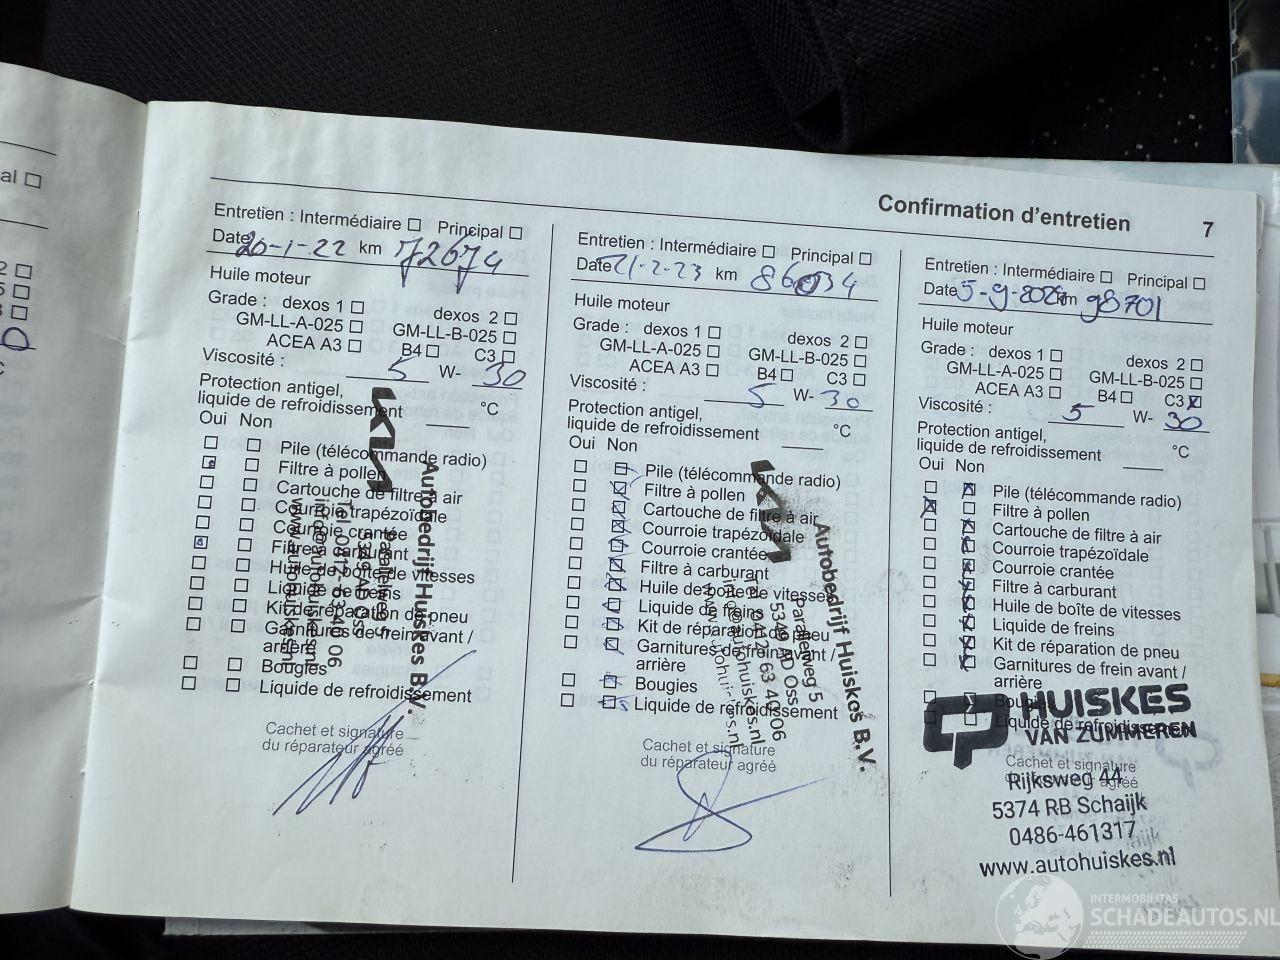 al
Confirmation d'entretien 7
Entretien : Intermédiaire Principal
Date 20-1-22 km 72674
Huile moteur
Grade : dexos 1 dexos 2
GM-LL-A-025 GM-LL-B-025
ACEA A3 B4 C3
Viscosité : 5 W- 30
Protection antigel,
liquide de refroidissement °C
Oui Non
Pile (télécommande radio)
Filtre à pollen
Cartouche de filtre à air
Courroie trapézoïdale
Courroie crantée
Filtre à carburant
Huile de boîte de vitesses
Liquide de freins
Kit de réparation de pneu
Garnitures de frein avant /
arrière
Bougies
Liquide de refroidissement
Cachet et signature
du réparateur agréé
KIA
Autobedrijf Huiskes B.V.
Paralelweg 5
5349 AD Oss
Tel. 0412-63 40 06
info@autohuiskes.nl
www.autohuiskes.nl
Entretien : Intermédiaire Principal
Date 21-2-23 km 86034
Huile moteur
Grade : dexos 1 dexos 2
GM-LL-A-025 GM-LL-B-025
ACEA A3 B4 C3
Viscosité : 5 W- 30
Protection antigel,
liquide de refroidissement °C
Oui Non
Pile (télécommande radio)
Filtre à pollen
Cartouche de filtre à air
Courroie trapézoïdale
Courroie crantée
Filtre à carburant
Huile de boîte de vitesses
Liquide de freins
Kit de réparation de pneu
Garnitures de frein avant /
arrière
Bougies
Liquide de refroidissement
Cachet et signature
du réparateur agréé
KIA
Autobedrijf Huiskes B.V.
Paralelweg 5
5349 AD Oss
Tel. 0412-63 40 06
info@autohuiskes.nl
www.autohuiskes.nl
Entretien : Intermédiaire Principal
Date 5-9-2024 km 98701
Huile moteur
Grade : dexos 1 dexos 2
GM-LL-A-025 GM-LL-B-025
ACEA A3 B4 C3
Viscosité : 5 W- 30
Protection antigel,
liquide de refroidissement °C
Oui Non
Pile (télécommande radio)
Filtre à pollen
Cartouche de filtre à air
Courroie trapézoïdale
Courroie crantée
Filtre à carburant
Huile de boîte de vitesses
Liquide de freins
Kit de réparation de pneu
Garnitures de frein avant /
arrière
Bougies
Liquide de refroidissement
Cachet et signature
du réparateur agréé
HUISKES
VAN ZUMMEREN
Rijksweg 44
5374 RB Schaijk
0486-461317
www.autohuiskes.nl
INTERMOBILITAS
SCHADEAUTOS.NL